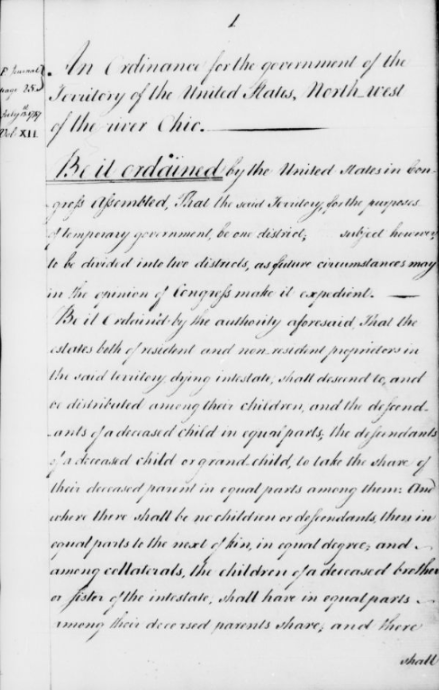 1
P Journal
page 25
July 13th 1787
Vol. XII
An Ordinance for the government of the
Territory of the United States, North-west
of the river Ohio.
Be it ordained by the United States in Con-
gress Assembled, That the said Territory, for the purposes
of temporary government, be one district; subject however
to be divided into two districts, as future circumstances may
in the opinion of Congress make it expedient.
Be it Ordain'd by the authority aforesaid, That the
estates both of resident and non resident proprietors in
the said territory, dying intestate, shall descend to, and
be distributed among their children, and the descend-
ants of a deceased child in equal parts; the descendants
of a deceased child or grand child, to take the share of
their deceased parent in equal parts among them: And
where there shall be no children or descendants, then in
equal parts to the next of kin, in equal degree; and
among collaterals, the children of a deceased brother
or sister of the intestate, shall have in equal parts
among their deceased parents share; and there
shall